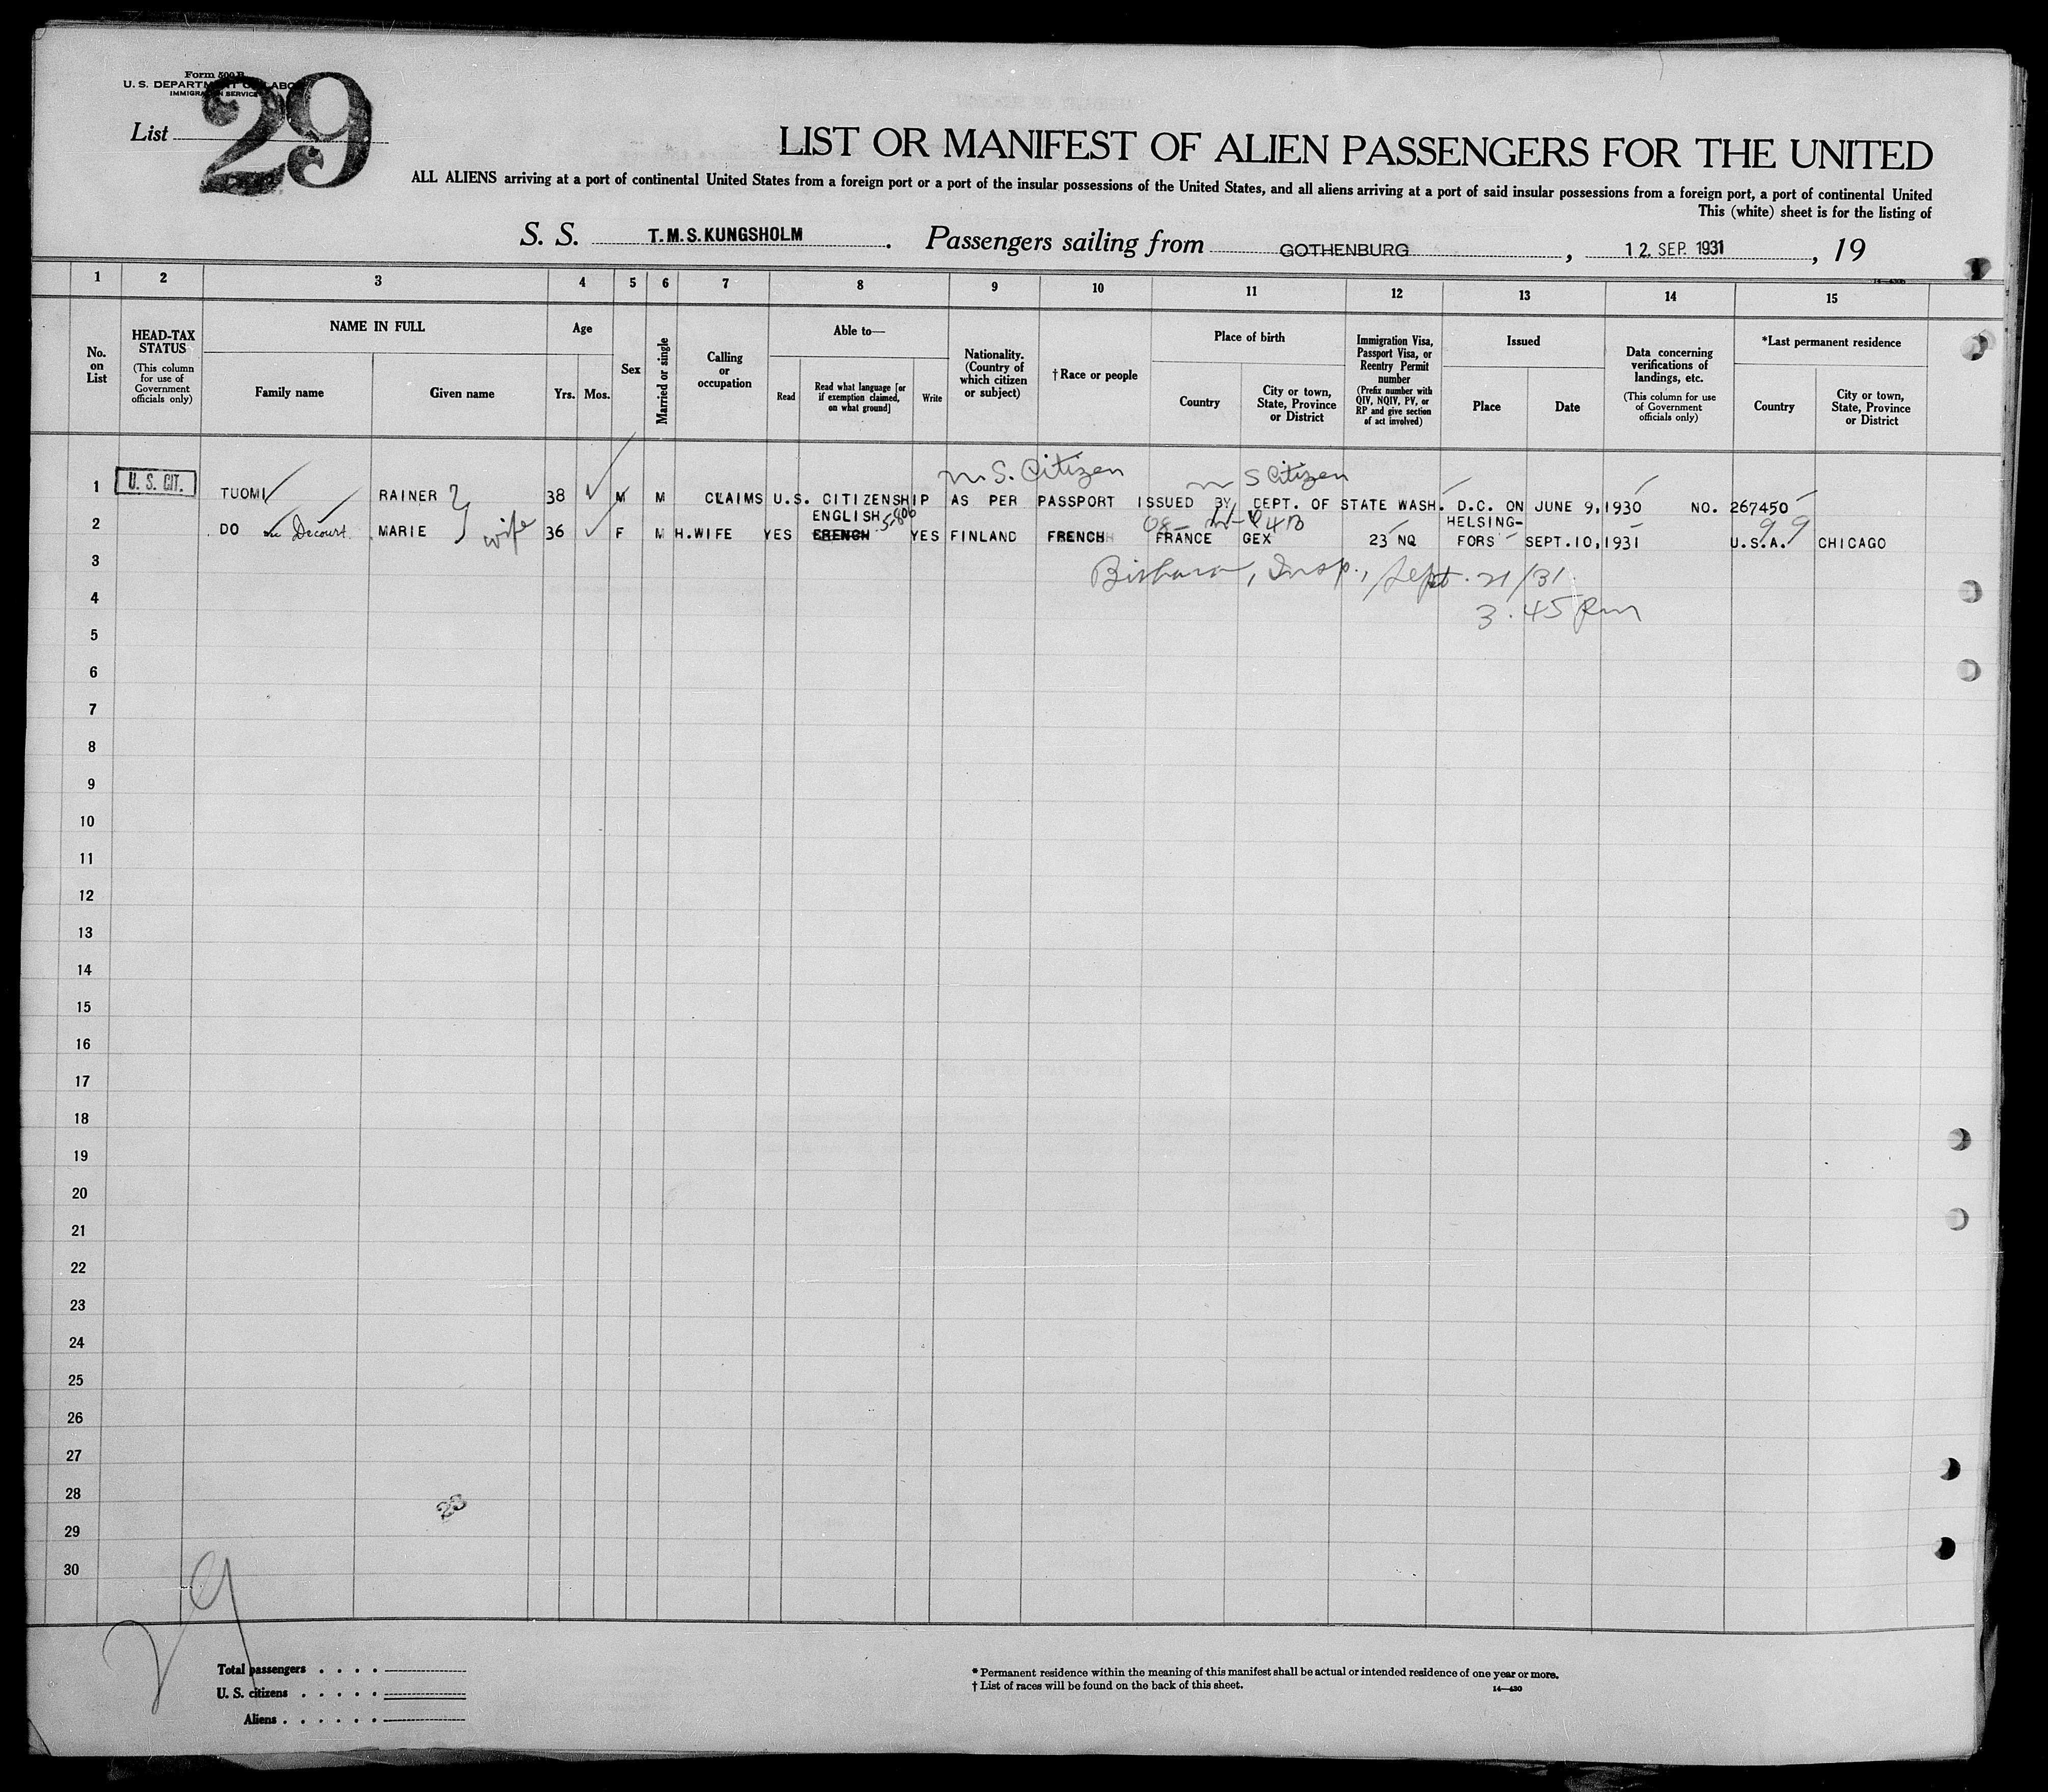 Form 500 B
U. S. DEPARTMENT OF LABOR
IMMIGRATION SERVICE
List 29
LIST OR MANIFEST OF ALIEN PASSENGERS FOR THE UNITED
ALL ALIENS arriving at a port of continental United States from a foreign port or a port of the insular possessions of the United States, and all aliens arriving at a port of said insular possessions from a foreign port, a port of continental United
This (white) sheet is for the listing of
S. S. T.M.S. KUNGSHOLM . Passengers sailing from GOTHENBURG , 12. SEP. 1931 , 19
1 2 3 4 5 6 7 8 9 10 11 12 13 14 15
No. on List
HEAD-TAX STATUS
(This column for use of Government officials only)
NAME IN FULL
Family name
Given name
Age
Yrs. Mos.
Sex
Married or single
Calling or occupation
Able to—
Read
Read what language [or if exemption claimed, on what ground]
Write
Nationality. (Country of which citizen or subject)
† Race or people
Place of birth
Country
City or town, State, Province or District
Immigration Visa, Passport Visa, or Reentry Permit number
(Prefix number with QIV, NQIV, PV, or RP and give section of act involved)
Issued
Place
Date
Data concerning verifications of landings, etc.
(This column for use of Government officials only)
*Last permanent residence
Country
City or town, State, Province or District
U.S. Citizen
U S Citizen
1 U. S. CIT. TUOMI RAINER 38 M M CLAIMS U.S. CITIZENSHIP AS PER PASSPORT ISSUED BY DEPT. OF STATE WASH. D.C. ON JUNE 9, 1930 NO. 267450
2 DO Decourt MARIE wife 36 F M H.WIFE YES ENGLISH FRENCH YES FINLAND FRENCH FRANCE GEX 23 NQ HELSING-FORS SEPT. 10, 1931 U.S.A. CHICAGO
3 Insp., Sept. 21/31
4 3.45 Pm
5
6
7
8
9
10
11
12
13
14
15
16
17
18
19
20
21
22
23
24
25
26
27
28
23
29
30
29
Total passengers . . . .
U. S. citizens . . . . .
Aliens . . . . . .
* Permanent residence within the meaning of this manifest shall be actual or intended residence of one year or more.
† List of races will be found on the back of this sheet.
14—430